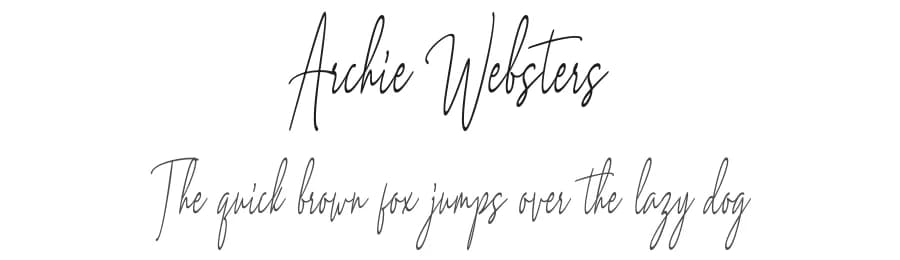 Archie Websters
The quick brown fox jumps over the lazy dog